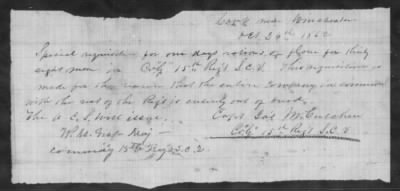 Camp near Winchester
Oct 29th 1862
Special requisition for one days rations of flour for thirty
eight men in Co "G" 15th Regt S.C.V. This requisition is
made for the reason that the entire company in common
with the rest of the Regt is entirely out of bread.
The A. C. S. will issue. Capt Gol McCutchen
W. M. Maj Co "G" 15th Regt S.C.V.
commdg 15th Regt S.C.V.